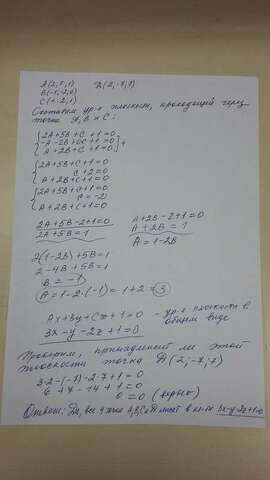 A(2;5;1)    D(2;-7;7)
B(-1;-2;0)
C(1;2;1)
Составим ур-е плоскости, проходящей через
точки A, B и C:
{2A+5B+C+1=0
-A-2B+0C+1=0
A+2B+C+1=0 } +
{2A+5B+C+1=0
C+2=0
A+2B+C+1=0
{2A+5B+C+1=0
C=-2
A+2B+C+1=0
2A+5B-2+1=0    A+2B-2+1=0
2A+5B=1    A+2B=1
A=1-2B
2(1-2B)+5B=1
2-4B+5B=1
B=-1
A=1-2·(-1)=1+2=3
Ax+By+Cz+1=0 - ур-е плоскости в
3x-y-2z+1=0    общем виде
Проверим, принадлежит ли этой
плоскости точка D(2;-7;7)
3·2-(-7)-2·7+1=0
6+7-14+1=0
0=0 (верно)
Ответ: Да, все 4 точки A,B,C и D лежат в пл-ти 3x-y-2z+1=0